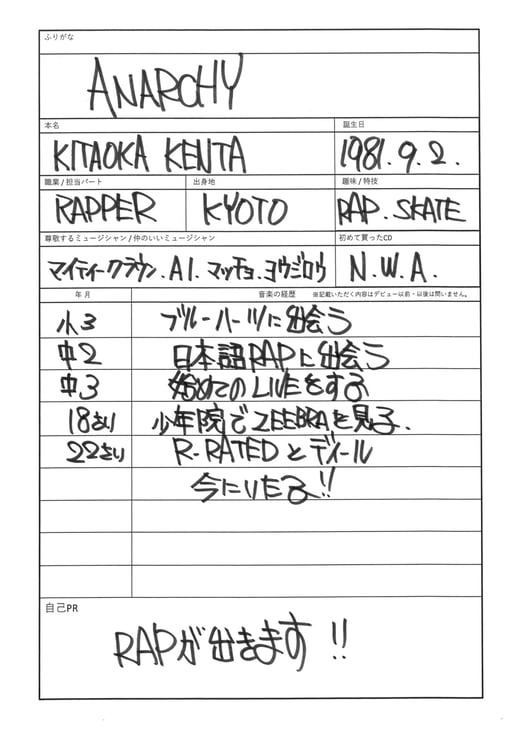 ふりがな
ANARCHY
本名 誕生日
KITAOKA KENTA 1981.9.2.
職業/担当パート 出身地 趣味/特技
RAPPER KYOTO RAP. SKATE
尊敬するミュージシャン/仲のいいミュージシャン 初めて買ったCD
マイティークラウン.AI.マッチョ.ヨウジロウ N.W.A.
年月 音楽の経歴 ※記載いただく内容はデビュー以前・以後は問いません。
小3 ブルーハーツに出会う
中2 日本語RAPに出会う
中3 始めてのLIVEをする
18さい 少年院でZEEBRAを見る.
22さい R-RATEDとディール
今にいたる!!
自己PR
RAPが出きます!!